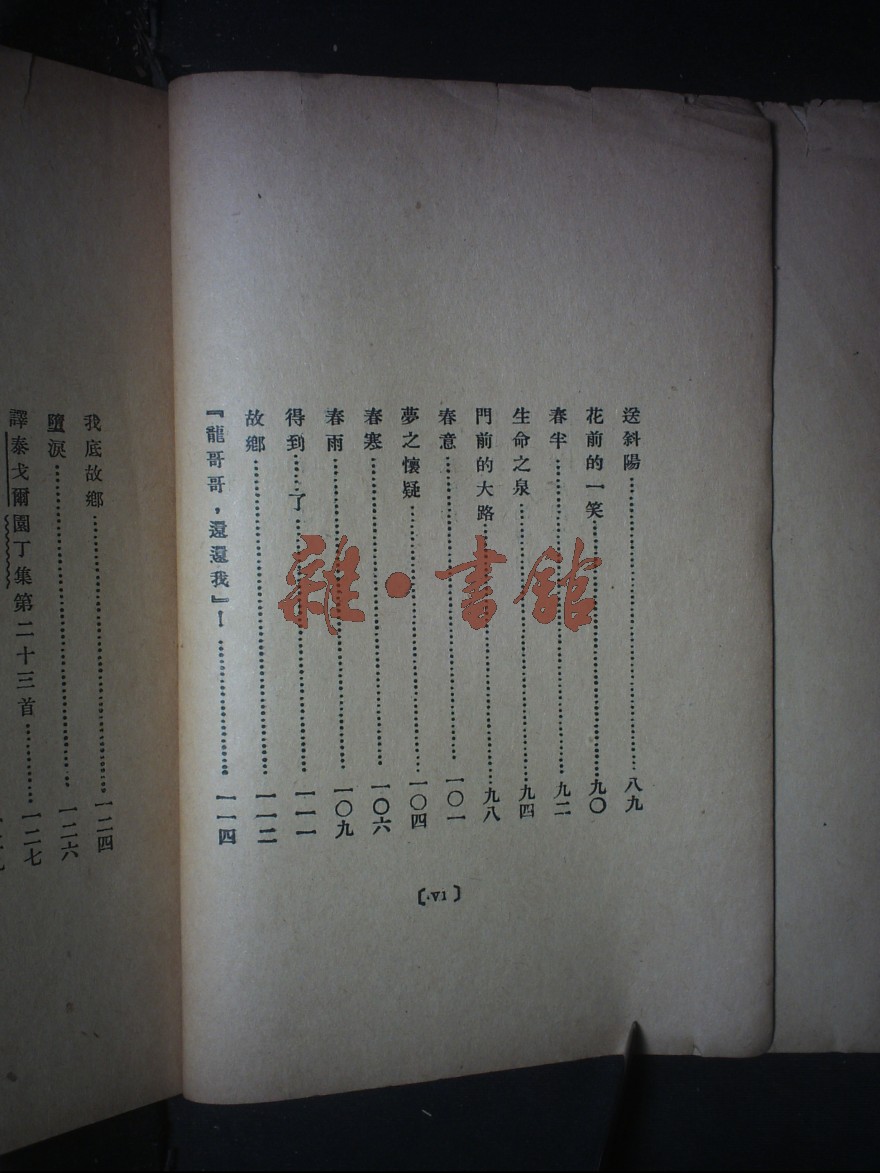 送斜陽……………………八九
花前的一笑……………………九〇
春半……………………九二
生命之泉……………………九四
門前的大路……………………九八
春意……………………一〇一
夢之懷疑……………………一〇四
春寒……………………一〇六
春雨……………………一〇九
得到……了……………………一一一
故鄉……………………一一二
『龍哥哥，還還我』！……………………一一四
〔VI〕
我底故鄉……………………一二四
墮淚……………………一二六
譯泰戈爾園丁集第二十三首…………一二七
雜·書館